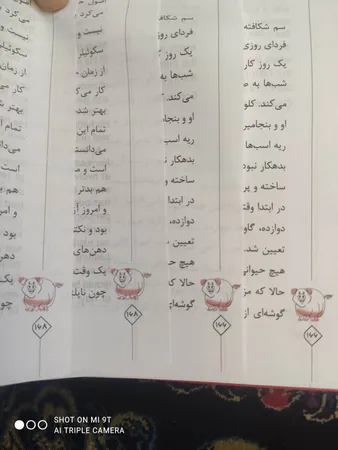 سم شکافته
فردای روزی
یک روز کار
شب‌ها به
می‌کند. کلو
او و بنجامین
ریه اسب‌ها
بدهکار نبود
ساخته و پر
در ابتدا وقت
دوازده، گاو
تعیین شد.
هیچ حیوانی
حالا که مز
گوشه‌ای از
۱۶۶
سم شکافته
فردای روزی
یک روز ک
شب‌ها به
می‌کند.
او و بنجام
ریه اسب‌ه
بدهکار ن
ساخته و
در ابتدا
دوازده،
تعیین
هیچ ح
حالا که
گوشه‌ای
۱۶۶
می‌کرد
نیست و
سکوتیلر
از زمان
کار می‌ک
بهتر شد
تمام این
می‌دانست
است و م
هم بدتر
و امروز از
بود و نکته
دهن‌های
یک وقت
چون ناپلئ
۱۶۸
می‌کرد
نیست و
سکوئیلر
از زمان
کار می‌
بهتر ش
تمام ا
می‌دا
است
هم بد
و امر
بود و
دهن
یک
چون
۱۶۸
SHOT ON MI 9T
AI TRIPLE CAMERA